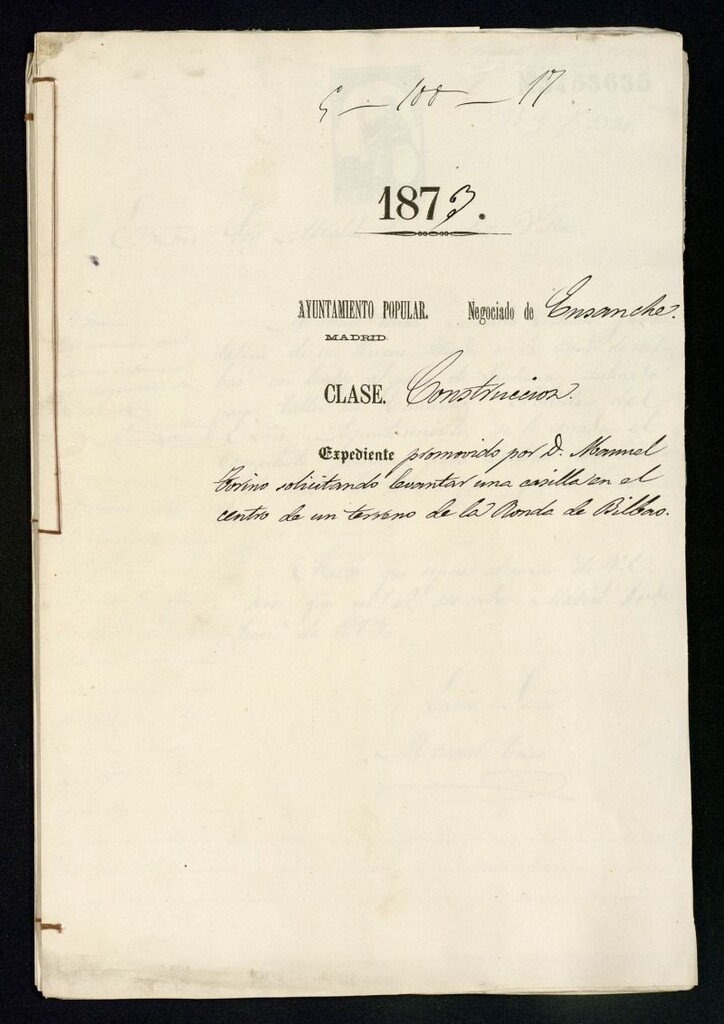 5 - 100 - 17
1873.
AYUNTAMIENTO POPULAR. Negociado de Ensanche.
MADRID.
CLASE. Construccion.
Expediente promovido por D. Manuel
solicitando levantar una casilla en el
centro de un terreno de la Ronda de Bilbao.